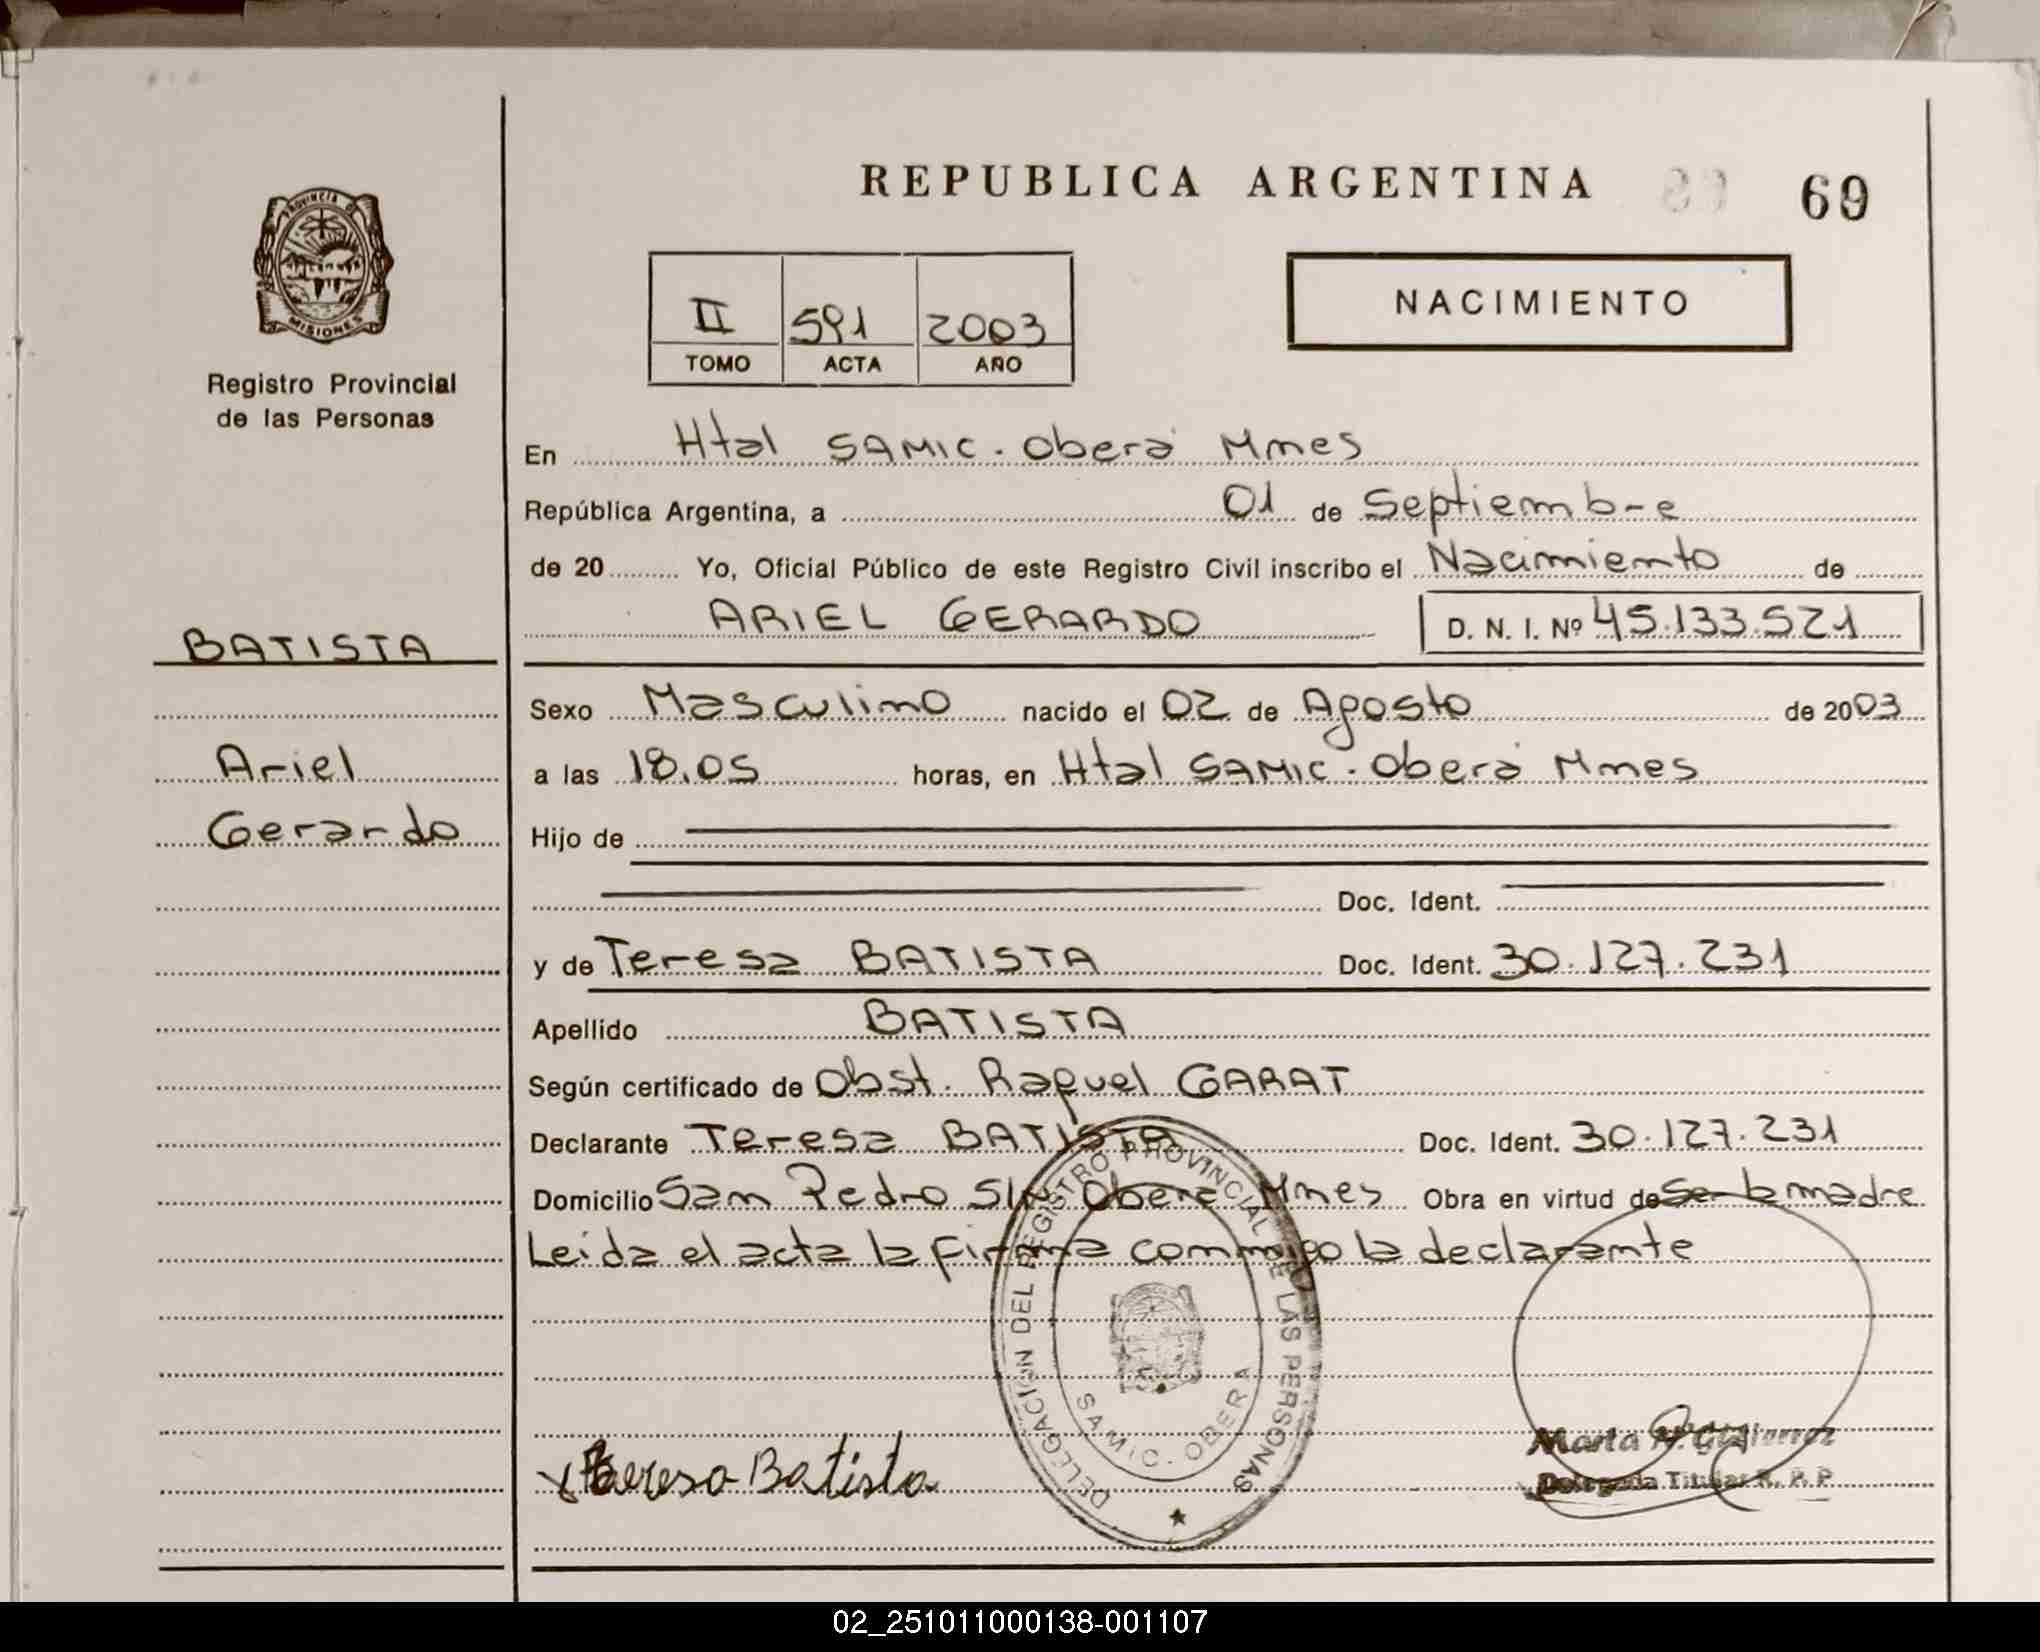 REPUBLICA ARGENTINA 69
PROVINCIA DE
MISIONES
Registro Provincial
de las Personas
II 591 2003
TOMO ACTA AÑO
NACIMIENTO
En Htal SAMIC. Oberá Mnes
República Argentina, a 01 de Septiembre
de 20 Yo, Oficial Público de este Registro Civil inscribo el Nacimiento de
ARIEL GERARDO D. N. I. Nº 45.133.521
BATISTA
Ariel
Gerardo
Sexo Masculino nacido el 02 de Agosto de 2003
a las 18.05 horas, en Htal SAMIC. Oberá Mnes
Hijo de
Doc. Ident.
y de Teresa BATISTA Doc. Ident. 30.127.231
Apellido BATISTA
Según certificado de Obst. Raquel GARAT
Declarante Teresa BATISTA Doc. Ident. 30.127.231
Domicilio San Pedro S/N Oberá Mnes Obra en virtud de Ser la madre
Leida el acta la firma conmigo la declarante
DELEGACIÓN DEL REGISTRO PROVINCIAL DE LAS PERSONAS
SAMIC. OBERA
Teresa Batista
Marta Gutierrez
Delegada Titular R. P. P.
02_251011000138-001107